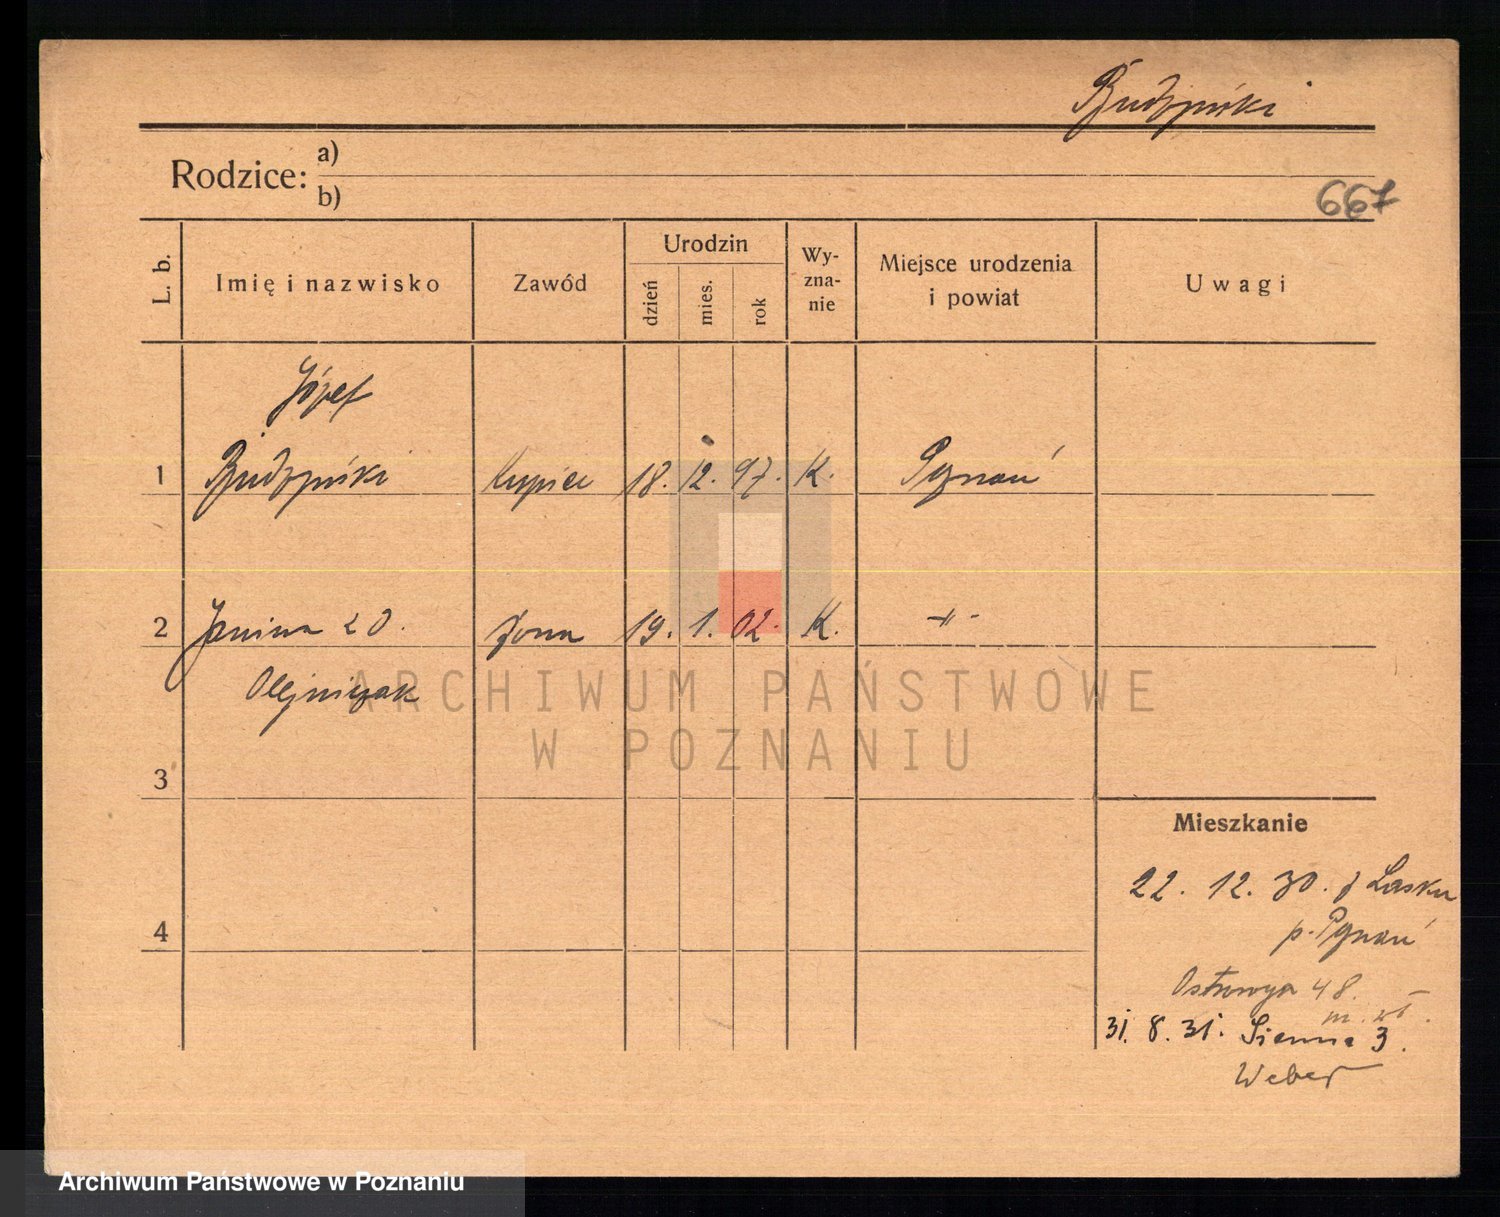 Budzyński
Rodzice: a)
b)
667
L. b.
Imię i nazwisko
Zawód
Urodzin
dzień
mies.
rok
Wy-
zna-
nie
Miejsce urodzenia
i powiat
Uwagi
Józef
1 Budzyński kupiec 18. 12. 97. K. Poznań
2 Janina z D. żona 19. 1. 02. K. -"-
Olejniczak
3
4
Mieszkanie
22. 12. 30. z Lasku
p. Poznań
48.
31. 8. 31. Sienna 3.
Weber
ARCHIWUM PAŃSTWOWE
W POZNANIU
Archiwum Państwowe w Poznaniu